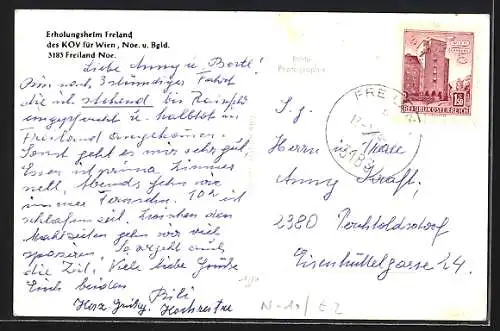 Erholungsheim Freland
des KOV für Wien, Noe. u. Bgld.
3183 Freiland Noe.
Liebe Anny u. Bertl!
Bin nach 3 stündiger Fahrt
die ich stehend bis
eingepfercht u. halbtot in
Freiland angekommen.
Sonst geht es mir sehr gut,
Essen ist prima Zimmer
nett, Abends gehn wir
immer Fernsehn. 10h ist
schlafenszeit. Zwischen den
Mahlzeiten gehn wir viel
spazieren. So vergeht auch
die Zeit. Viele liebe Grüße
Euch beiden
Herz.
Echte
Photographie
REPUBLIK ÖSTERREICH
FRE
3183
S. g.
Herrn u. Frau
Anny Kraft,
2380 Perchtoldsdorf
Eisenhüttelgasse 24.